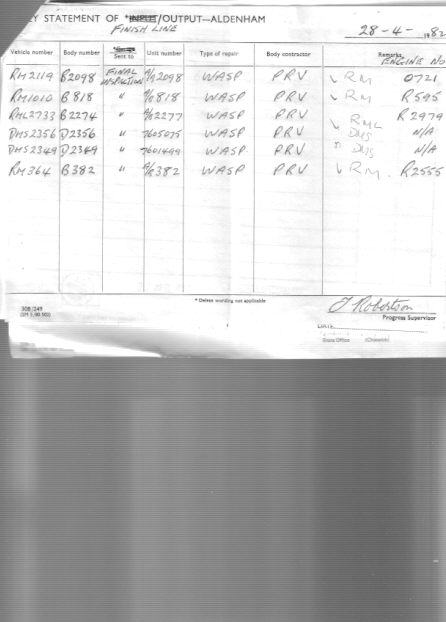 Y STATEMENT OF *INPUT/OUTPUT—ALDENHAM
FINISH LINE
28-4-1982
Vehicle number Body number Sent to Unit number Type of repair Body contractor Remarks ENGINE NO
RM2119 B2098 FINAL INSPECTION A/R2098 WASP PRV RM 0721
RM1010 B818 " 818 WASP PRV RM R595
RML2733 B2274 " 2277 WASP PRV RML R2979
DMS2356 D2356 " 7605075 WASP PRV DMS N/A
DMS2349 D2349 " 7601499 WASP PRV " DMS N/A
RM364 B382 " 382 WASP PRV RM R2555
* Delete wording not applicable
308/249
J Robertson
Progress Supervisor
DATE
Office (Chiswick)